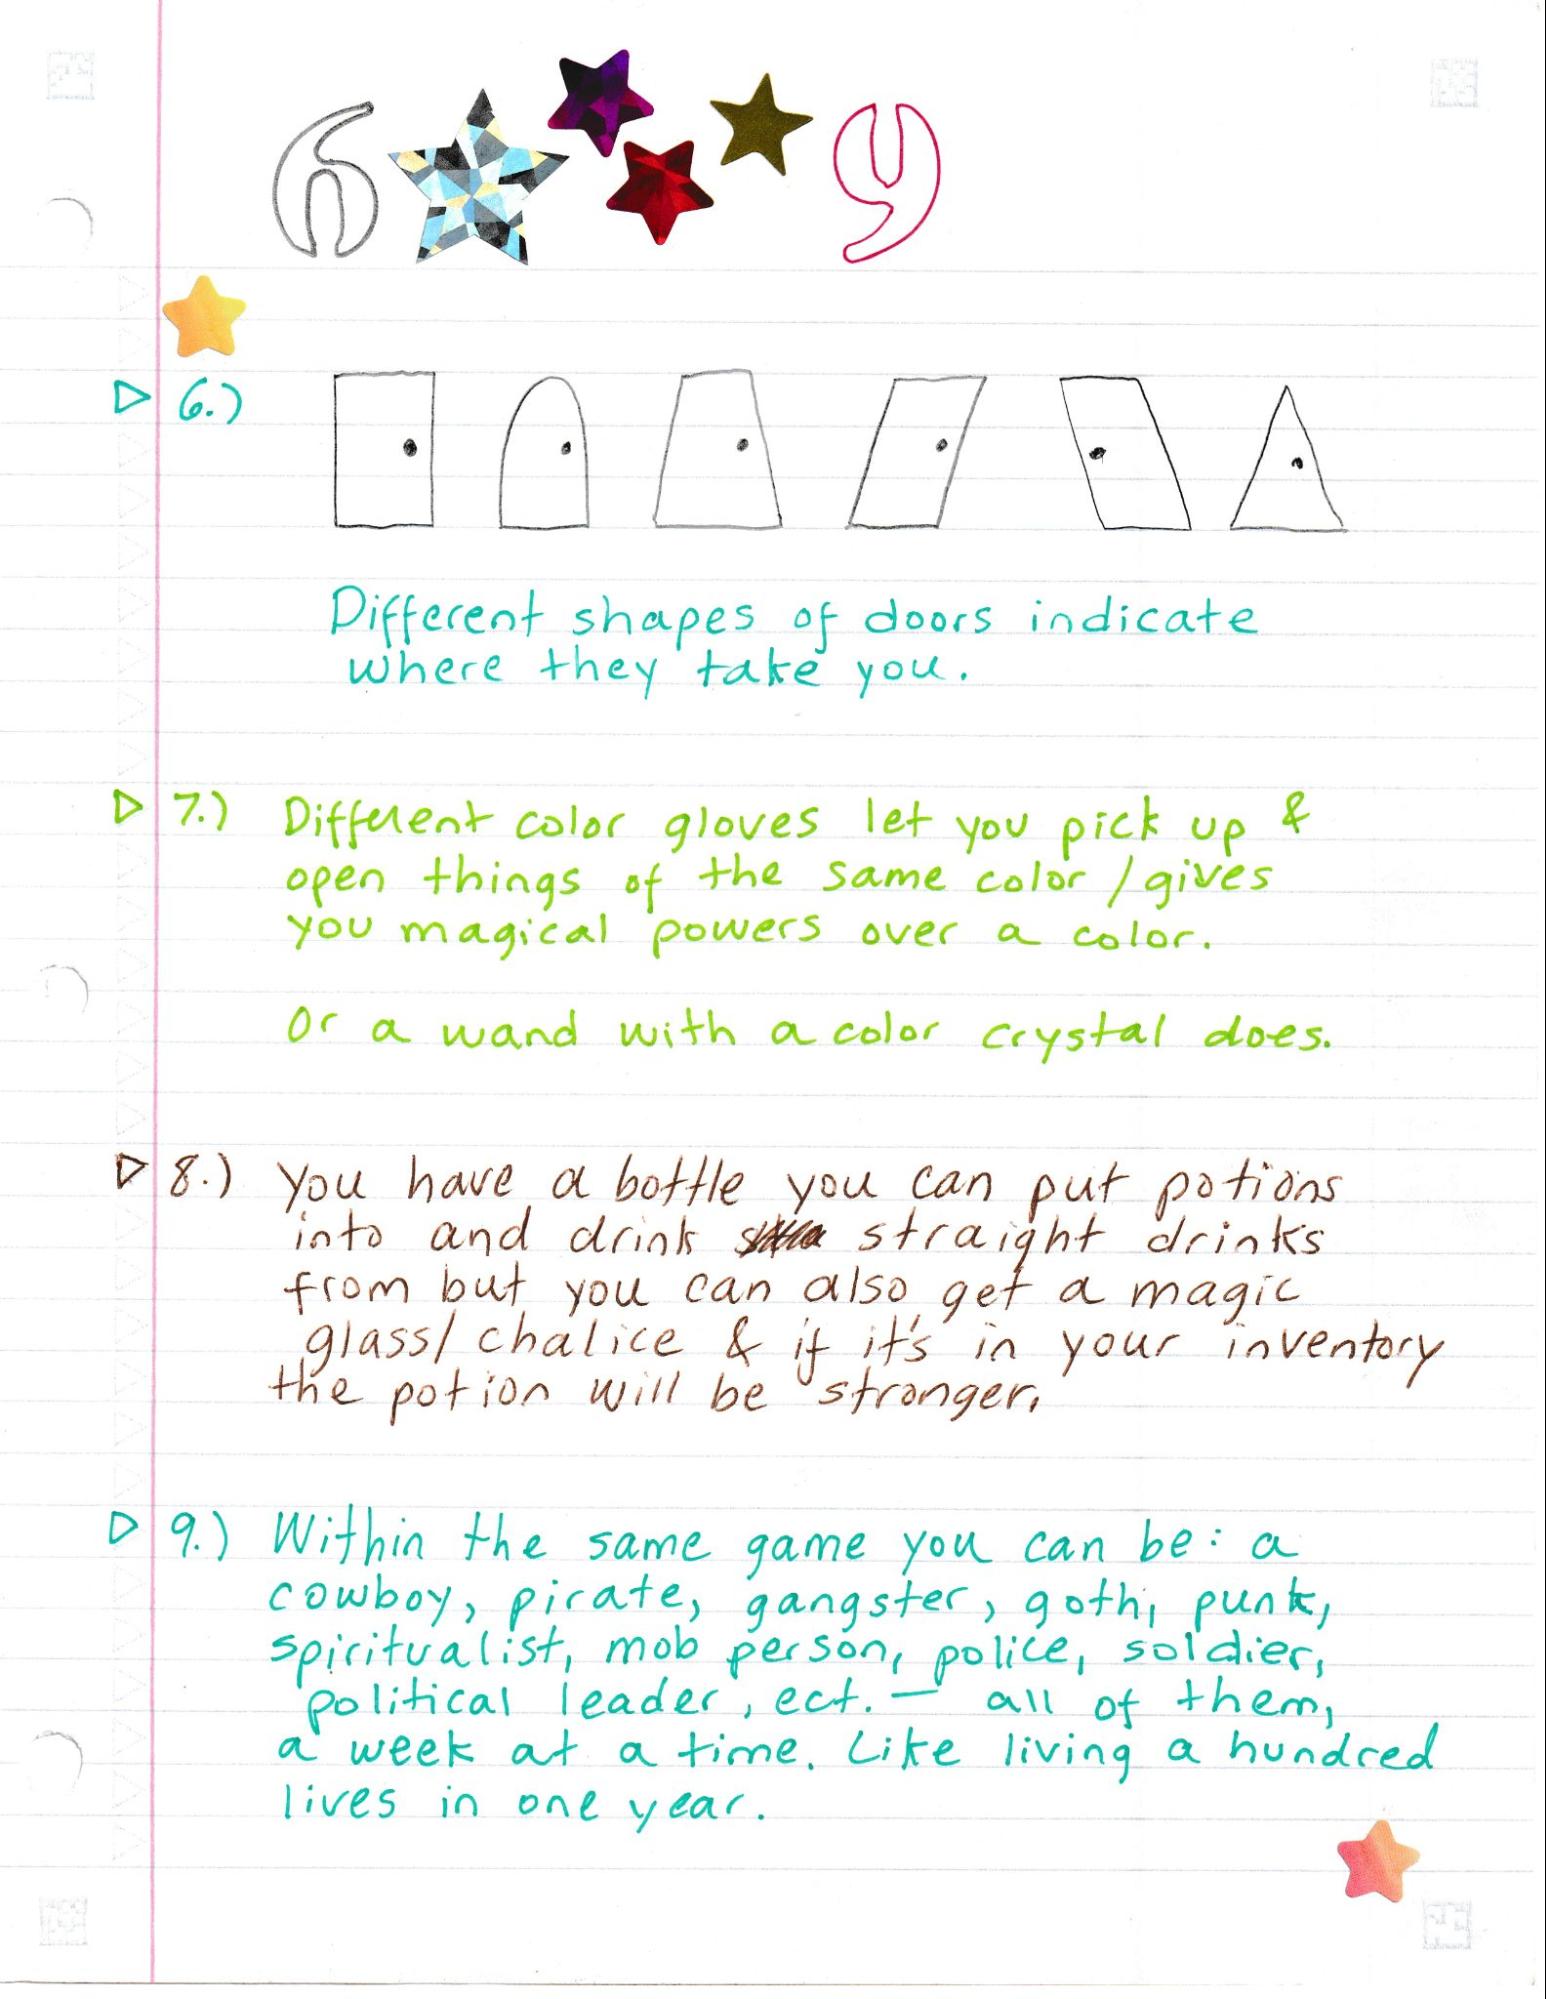 6 9
6.)
Different shapes of doors indicate
where they take you.
7.) Different color gloves let you pick up &
open things of the same color / gives
you magical powers over a color.
Or a wand with a color crystal does.
8.) You have a bottle you can put potions
into and drink straight drinks
from but you can also get a magic
glass/chalice & if it's in your inventory
the potion will be stronger.
9.) Within the same game you can be: a
cowboy, pirate, gangster, goth, punk,
spiritualist, mob person, police, soldier,
political leader, ect. — all of them,
a week at a time. Like living a hundred
lives in one year.